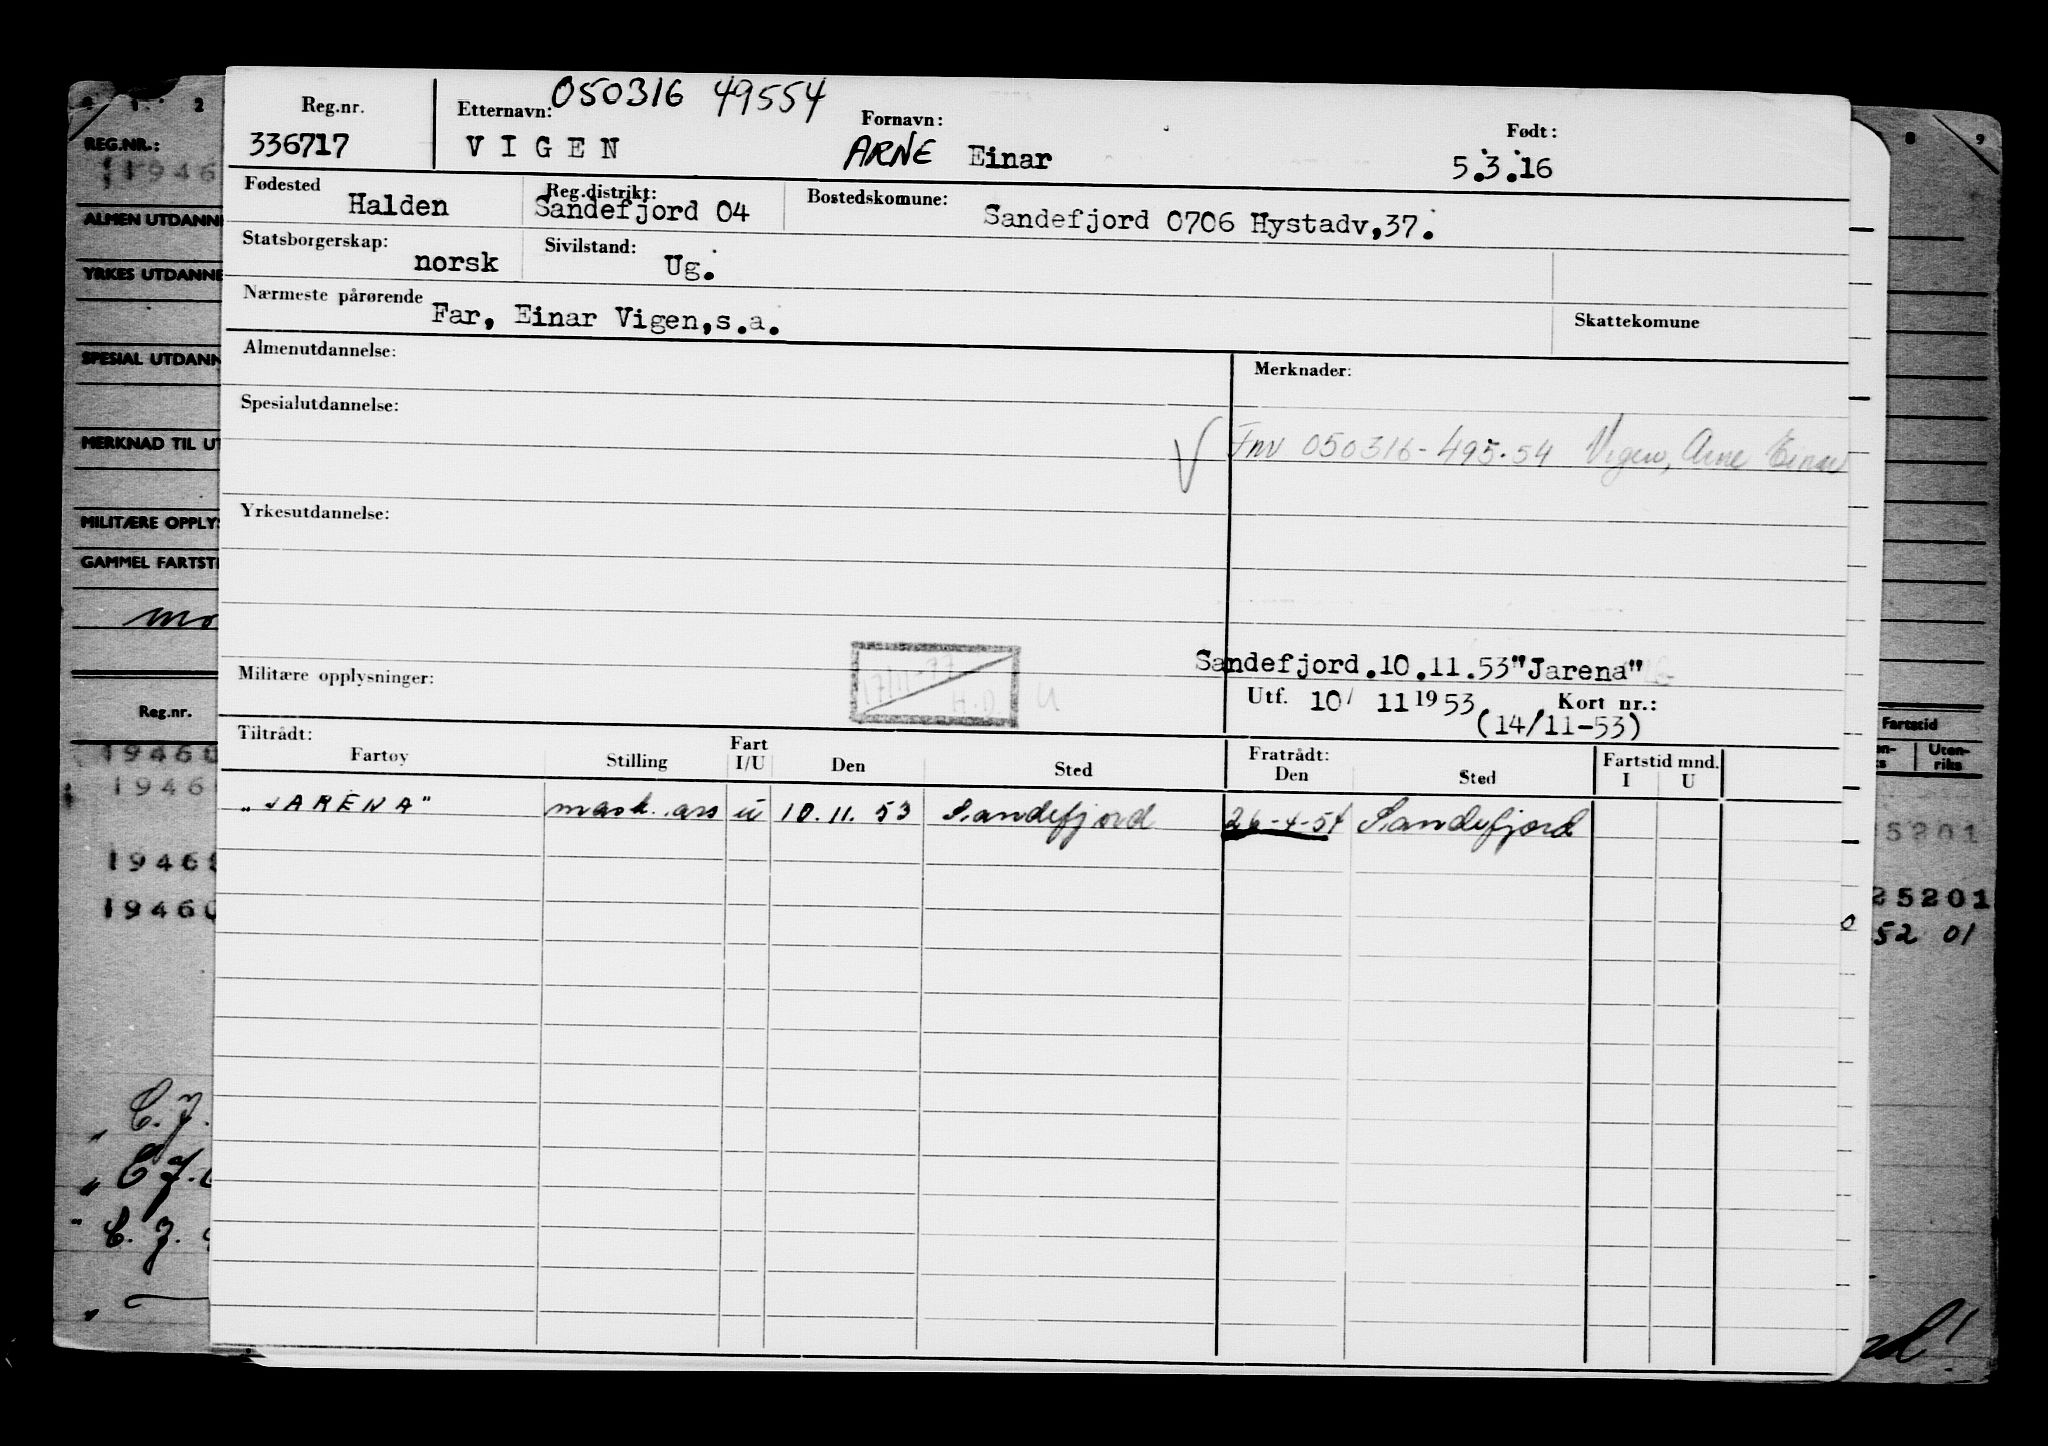 050316 49554
Reg.nr. Etternavn: Fornavn: Født:
336717 VIGEN ARNE Einar 5.3.16
Fødested Reg.distrikt: Bostedskomune:
Halden Sandefjord 04 Sandefjord 0706 Hystadv,37.
Statsborgerskap: Sivilstand:
norsk Ug.
Nærmeste pårørende Skattekomune
Far, Einar Vigen,s.a.
Almenutdannelse: Merknader:
Spesialutdannelse:
Fnr 050316-495.54 Vigen, Arne Einar
Yrkesutdannelse:
Sandefjord.10.11.53"Jarena"
Militære opplysninger: 17/11-77 H.D. U
Utf. 10/ 11 1953 Kort nr.:
(14/11-53)
Tiltrådt: Fratrådt:
Fartøy Stilling Fart I/U Den Sted Den Sted Fartstid mnd. I U
"JARENA" mask. ass u 10.11.53 Sandefjord 26-4-54 Sandefjord
0 1 2 8 9
REG.NR.:
1946
ALMEN UTDANNE
YRKES UTDANNE
SPESIAL UTDANN
MERKNAD TIL UT
MILITÆRE OPPLYS
GAMMEL FARTSTI
mo
Reg.nr. Fartstid
Uten-
riks
19460
1946
5201
1946
25201
19460
52 01
" C. J.
" C. J.
" C. J.
"